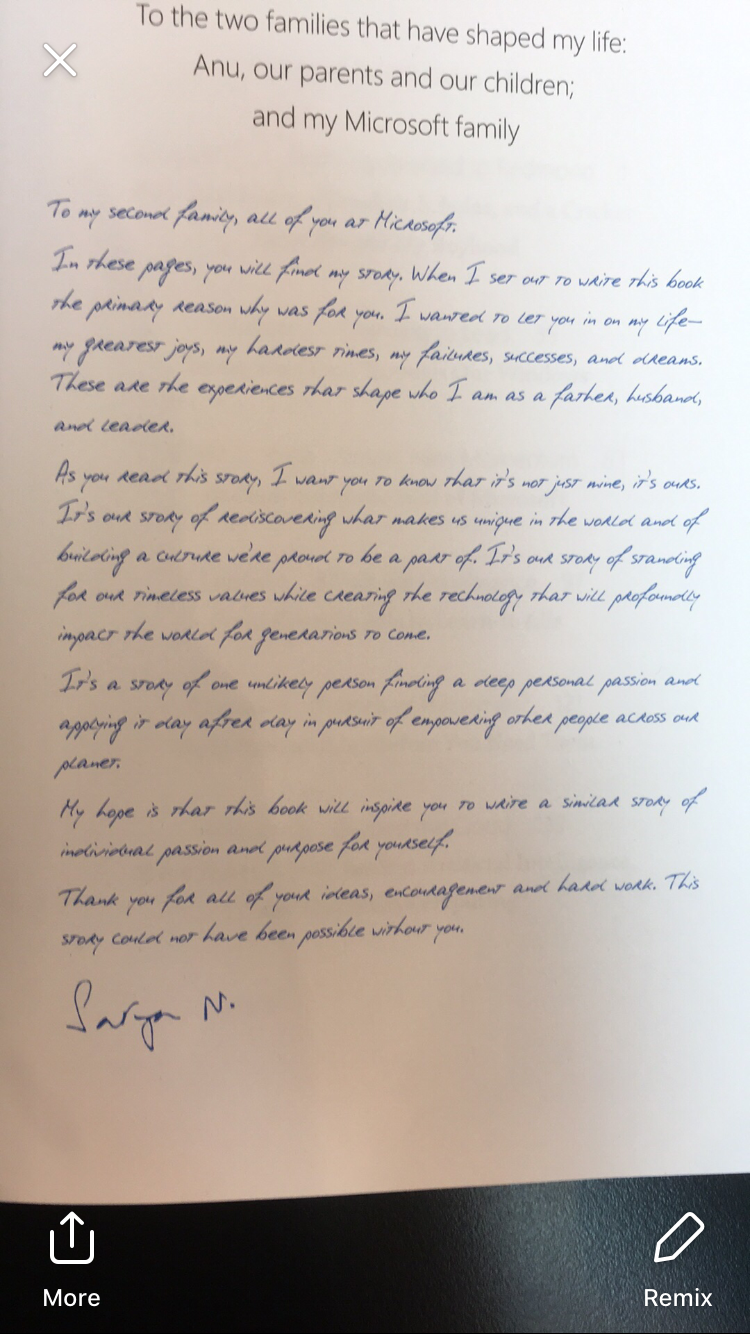 To the two families that have shaped my life:
Anu, our parents and our children;
and my Microsoft family
To my second family, all of you at Microsoft.
In these pages, you will find my story. When I set out to write this book
the primary reason why was for you. I wanted to let you in on my life—
my greatest joys, my hardest times, my failures, successes, and dreams.
These are the experiences that shape who I am as a father, husband,
and leader.
As you read this story, I want you to know that it's not just mine, it's ours.
It's our story of rediscovering what makes us unique in the world and of
building a culture we're proud to be a part of. It's our story of standing
for our timeless values while creating the technology that will profoundly
impact the world for generations to come.
It's a story of one unlikely person finding a deep personal passion and
applying it day after day in pursuit of empowering other people across our
planet.
My hope is that this book will inspire you to write a similar story of
individual passion and purpose for yourself.
Thank you for all of your ideas, encouragement and hard work. This
story could not have been possible without you.
Satya N.
More
Remix